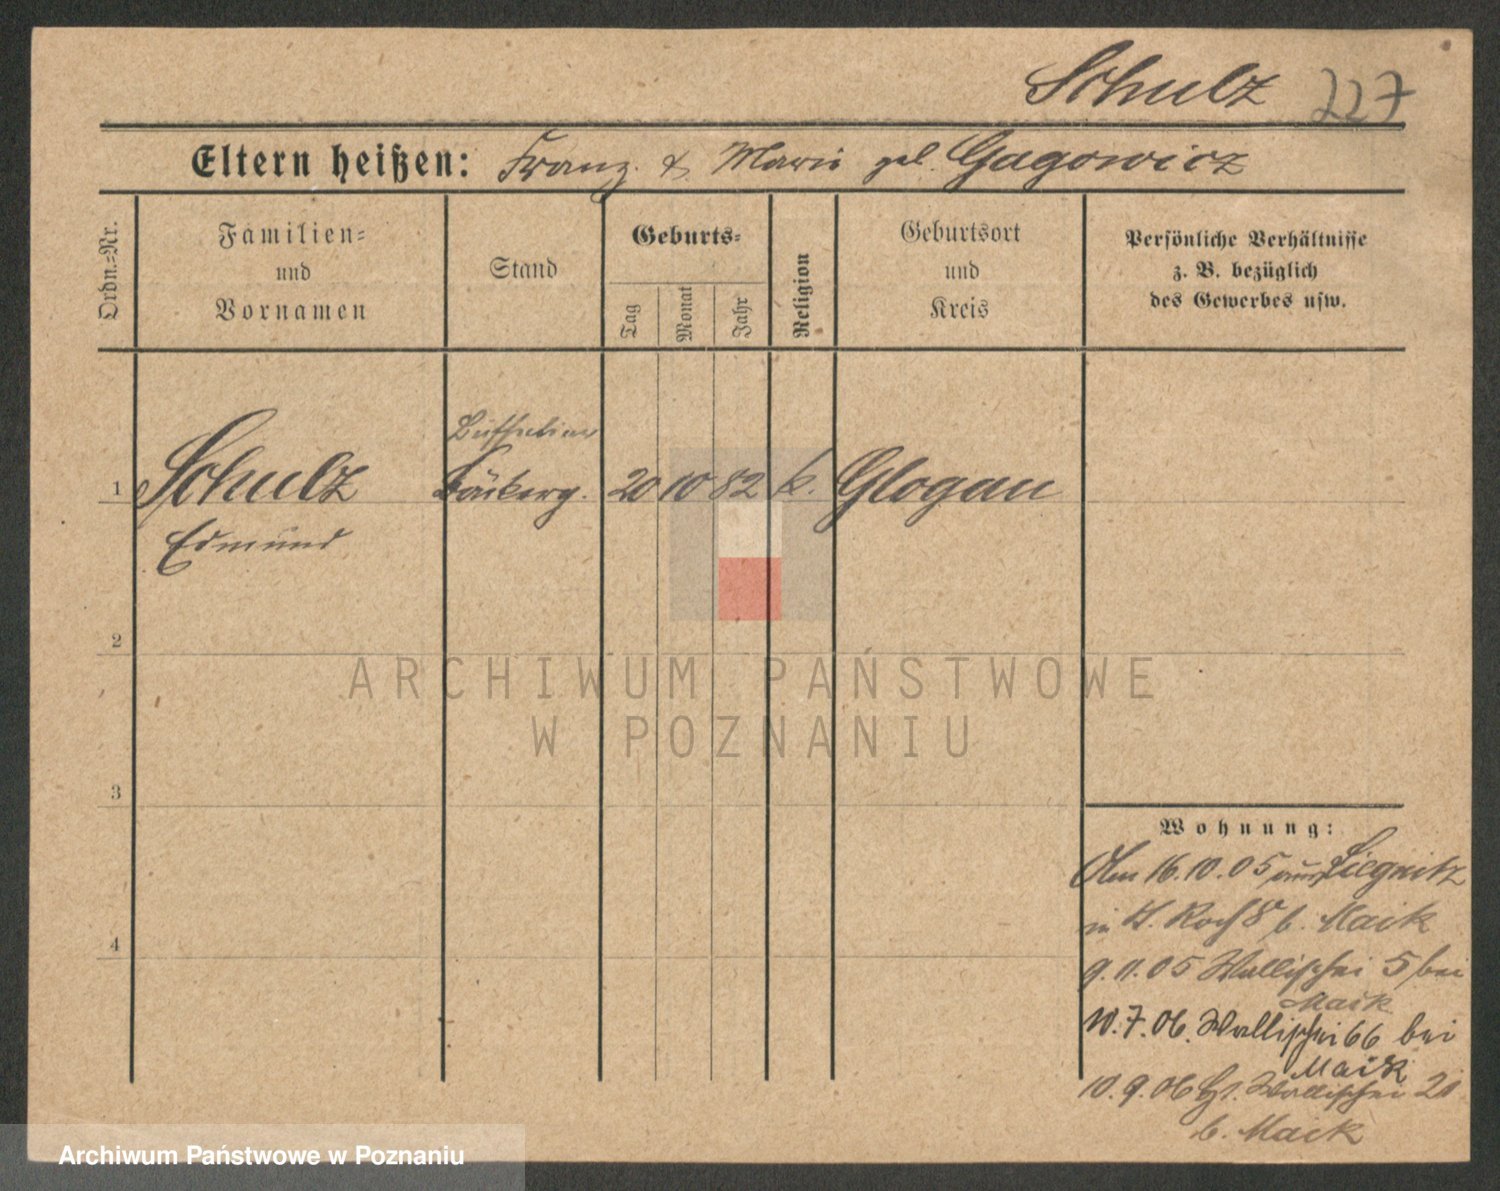 Schulz 227
Eltern heißen: Franz. & Marie geb. Gagowicz
Ordn.-Nr.
Familien-
und
Vornamen
Stand
Geburts-
Tag
Monat
Jahr
Religion
Geburtsort
und
Kreis
Persönliche Verhältnisse
z. B. bezüglich
des Gewerbes usw.
1 Schulz Bäckerg. 20 10 82 k. Glogau
Edmund
2
3
4
Wohnung:
Am 16.10.05 aus Liegnitz
in b. Maik
9.11.05 Wallischei 5 bei
Maik
10.7.06. Wallischei 66 bei
Maik
10.9.06 Wallischei
b. Maik
ARCHIWUM PAŃSTWOWE
W POZNANIU
Archiwum Państwowe w Poznaniu